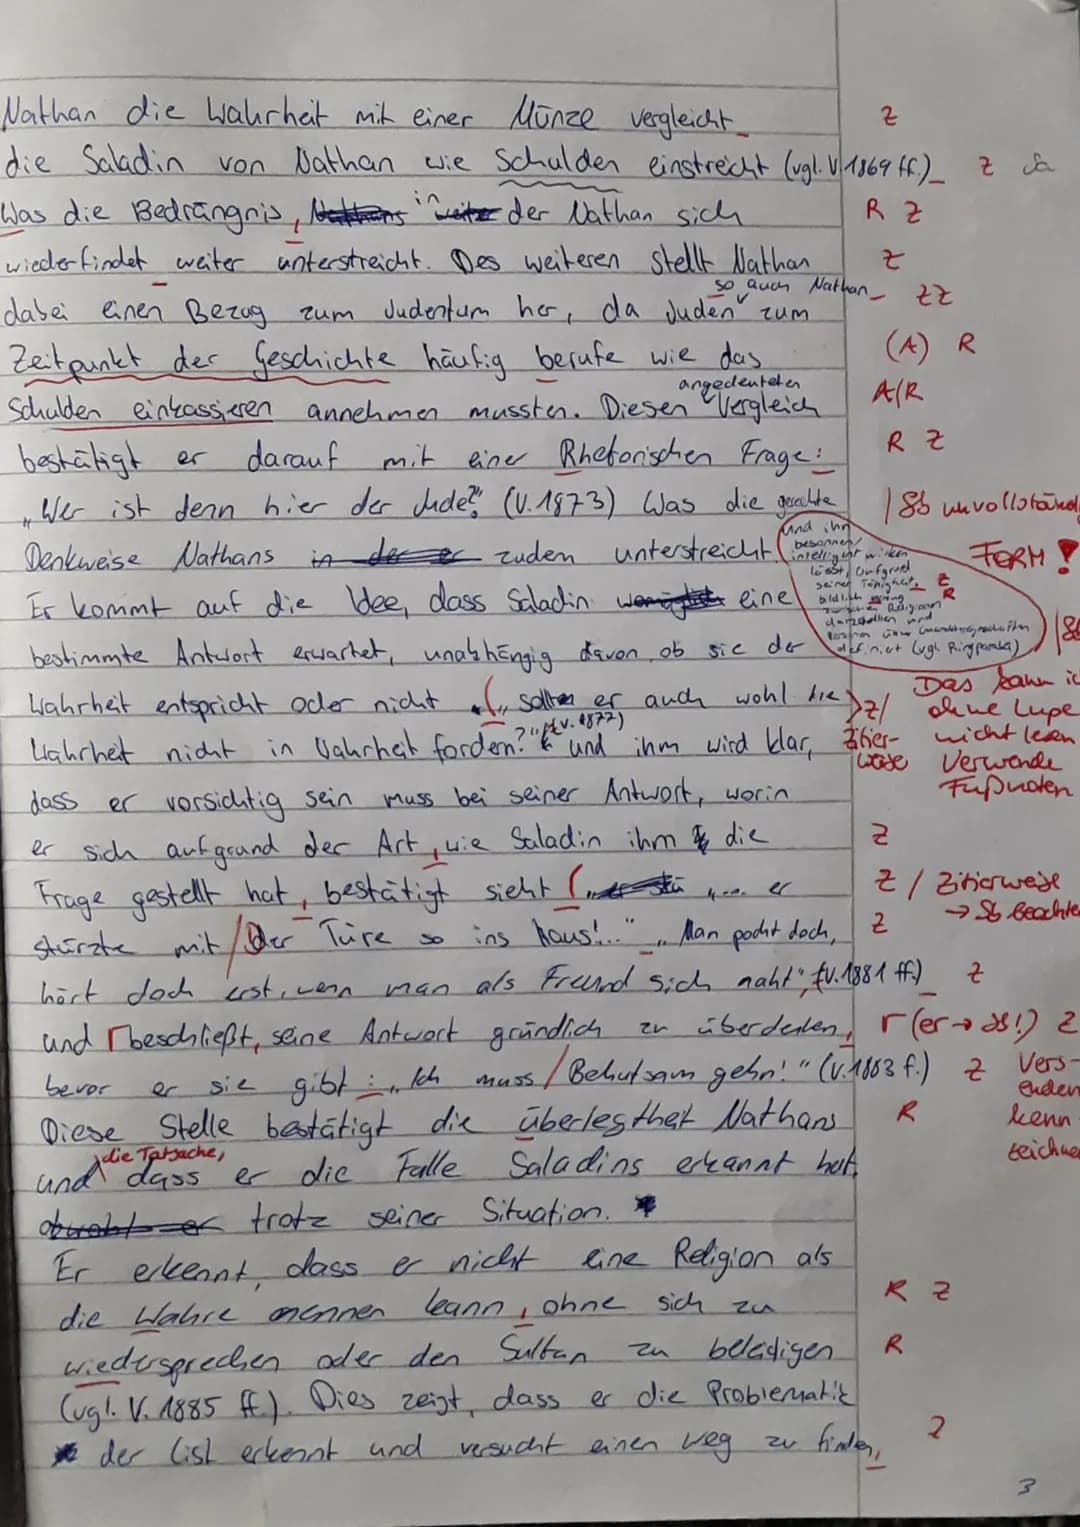 Nathan die Wahrheit mit einer Münze vergleicht Z
die Saladin von Nathan wie Schulden einstreicht (vgl. V. 1869 ff.) Z Sa
Was die Bedrängnis, in der Nathan sich R Z
wiederfindet weiter unterstreicht. Des weiteren stellt Nathan Z
so auch Nathan ZZ
dabei einen Bezug zum Judentum her, da Juden zum
Zeitpunkt der Geschichte häufig berufe wie das (A) R
angedeuteten
Schulden einkassieren annehmen mussten. Diesen Vergleich A/R
bestätigt er darauf mit einer Rhetorischen Frage: R Z
„Wer ist denn hier der Jude?" (V. 1873) Was die gerechte Sb unvollständ
Denkweise Nathans zudem unterstreicht. FORM!
und ihn
besonnen/
intelligent wirken
lässt, aufgrund
seiner Fähigkeit, Z
bildlich R
zwischen Religion
darzustellen und
definiert (vgl. Ringparabel) Sb
Er kommt auf die Idee, dass Saladin eine
bestimmte Antwort erwartet, unabhängig davon, ob sie der
Wahrheit entspricht oder nicht („sollte er auch wohl die Z/
Das kann ic
ohne Lupe
nicht lesen
Verwende
Fußnoten
Wahrheit nicht in Wahrheit fordern?" (V. 1877) und ihm wird klar, Zitier-
weise
dass er vorsichtig sein muss bei seiner Antwort, worin
er sich aufgrund der Art, wie Saladin ihm die Z
Frage gestellt hat, bestätigt sieht („... er Z / Zitierweise
→ Sb beachte
stürzte mit/der Türe so ins Haus!..." „Man pocht doch, Z
hört doch erst, wenn man als Freund sich naht", (V. 1881 ff.) Z
und beschließt, seine Antwort gründlich zu überdenken, r (er → as!) Z
bevor er sie gibt: „Ich muss/Behutsam gehn!" (V. 1883 f.) Z Vers-
enden
kenn
zeichne
Diese Stelle bestätigt die überlegtheit Nathans R
die Tatsache,
und dass er die Falle Saladins erkannt hat,
trotz seiner Situation.
Er erkennt, dass er nicht eine Religion als
die Wahre nennen kann, ohne sich zu R Z
wiedersprechen oder den Sultan zu beleidigen R
(vgl. V. 1885 ff.). Dies zeigt, dass er die Problematik
der List erkennt und versucht einen weg zu finden, Z
3